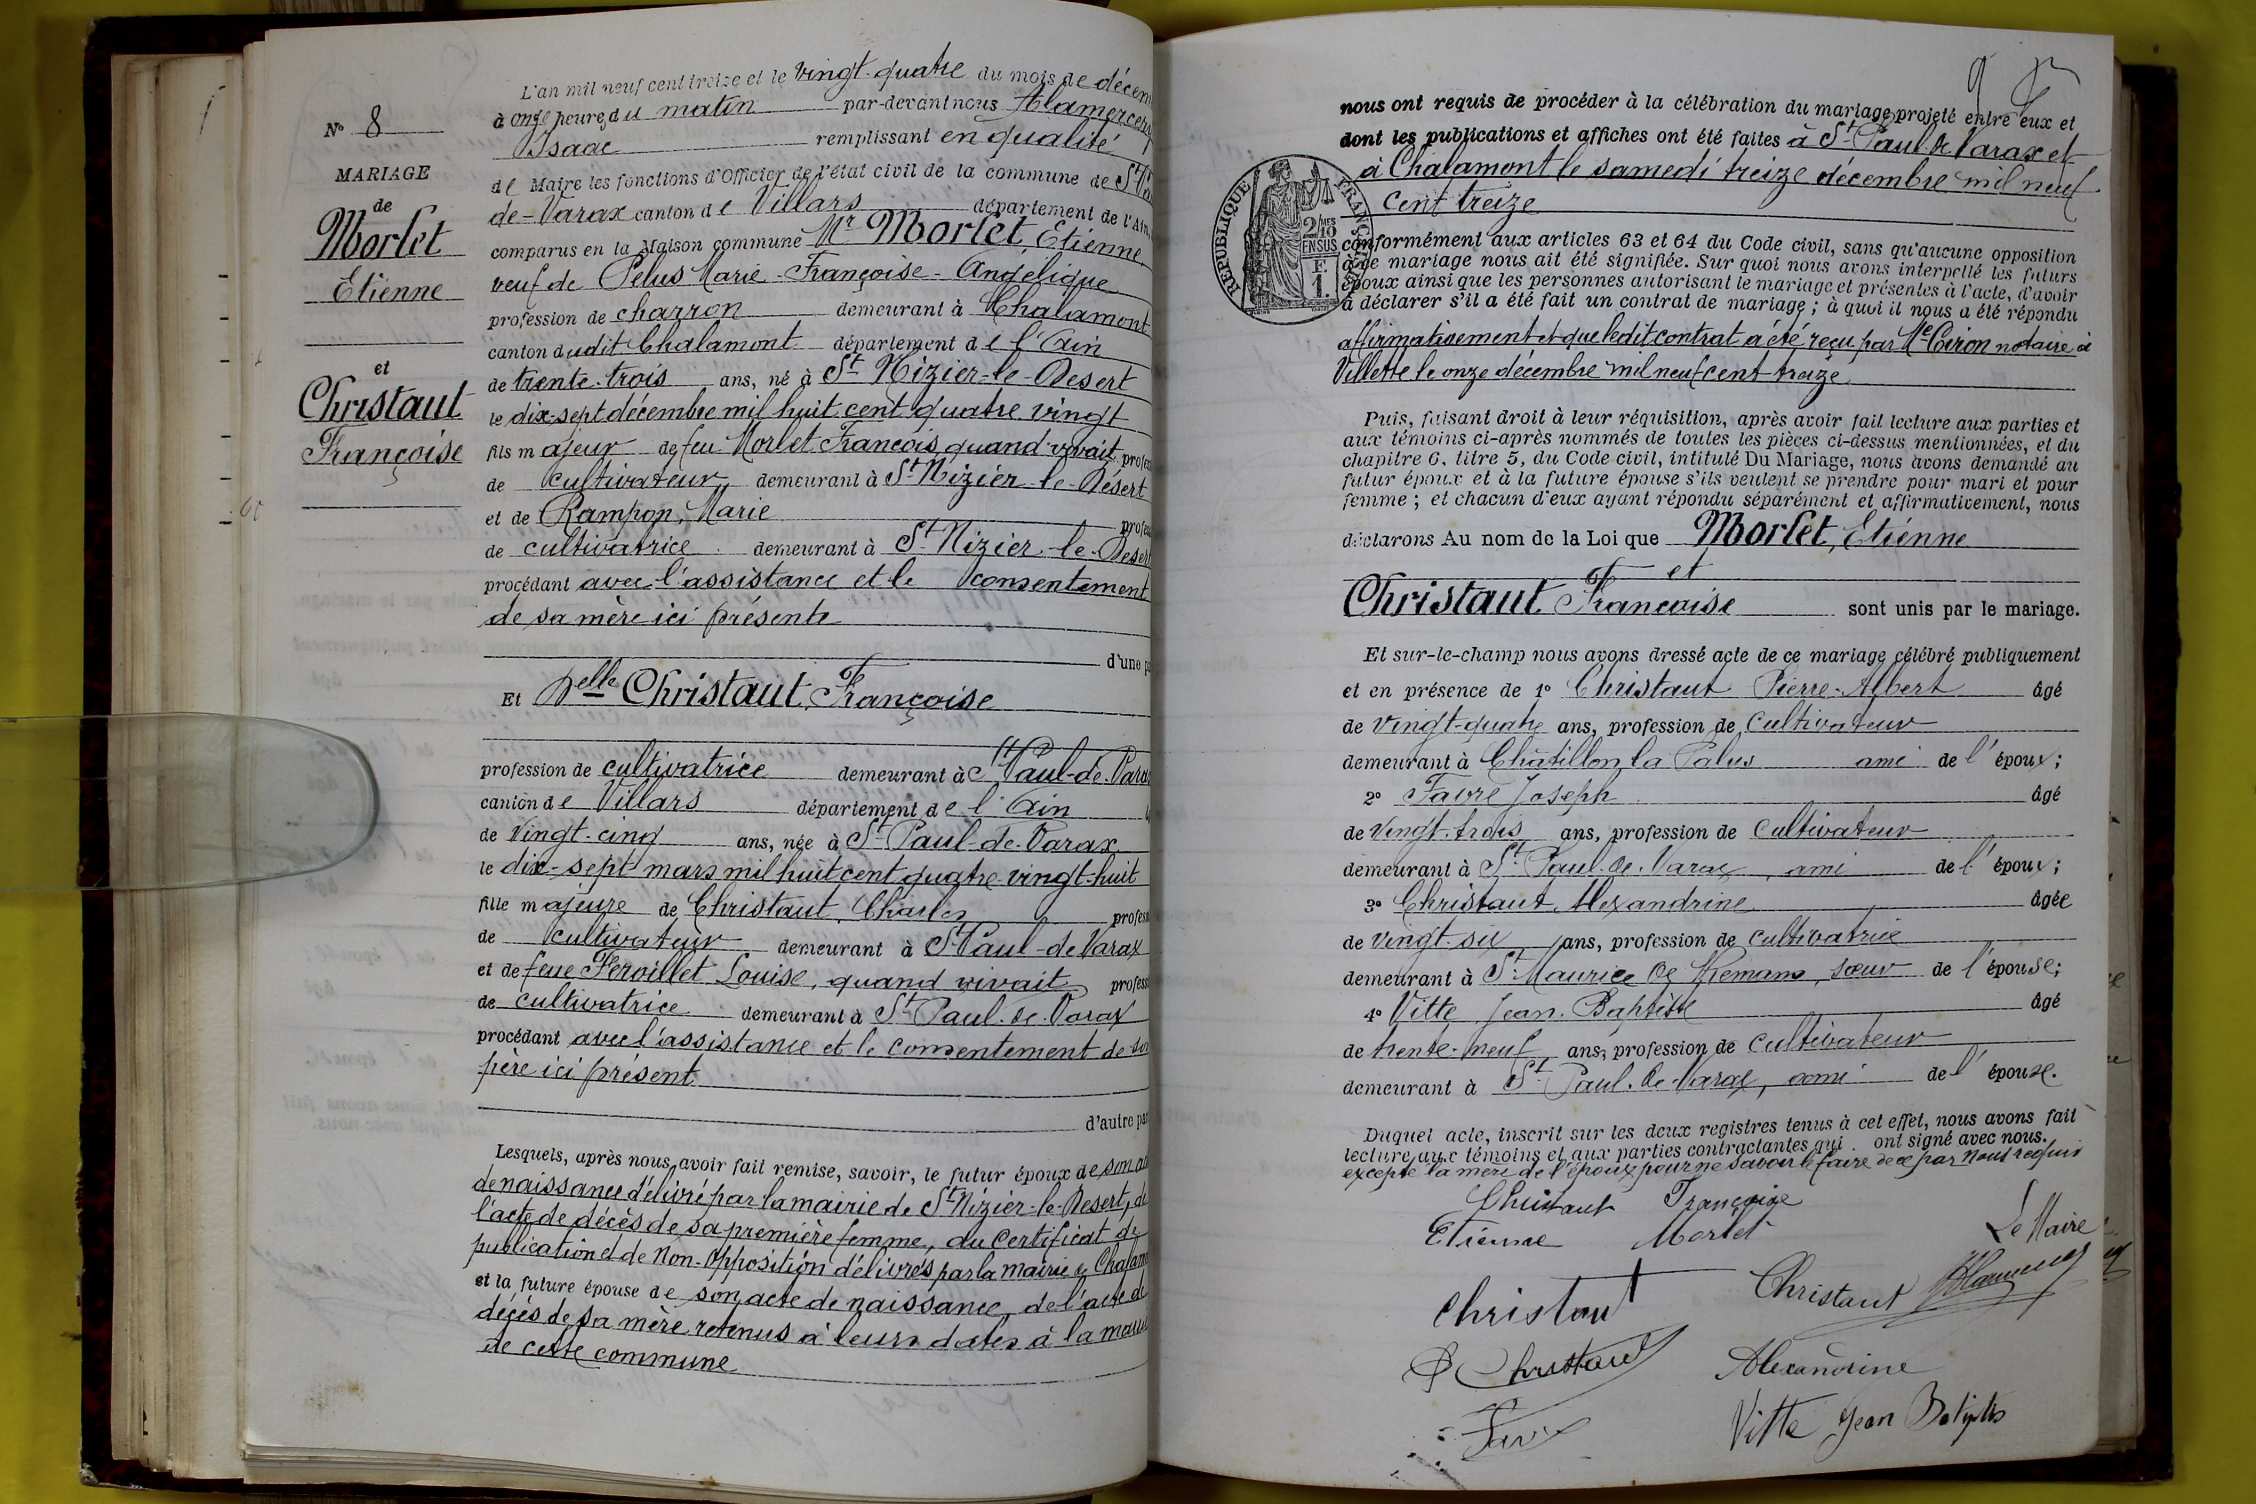 L'an mil neuf cent treize et le vingt-quatre du mois de décem
à onze heures du matin par-devant nous Alamercery
Isaac remplissant en qualité
de Maire les fonctions d'Officier de l'état civil de la commune de St
de-Varax canton de Villars département de l'Ain,
comparus en la Maison commune Mr Morlet, Etienne
veuf de Pelus Marie-Françoise-Angélique
profession de charron demeurant à Chalamont
canton dudit Chalamont département de l'Ain
de trente-trois ans, né à St Nizier-le-Desert
le dix-sept décembre mil huit cent quatre vingt
fils majeur de feu Morlet François quand vivait profess
de cultivateur demeurant à St Nizier-le-Desert
et de Rampon, Marie profess
de cultivatrice demeurant à St Nizier-le-Desert
procédant avec l'assistance et le consentement
de sa mère ici présente
d'une pa
Et Delle Christaut, Françoise
profession de cultivatrice demeurant à St Paul-de-Varax
canton de Villars département de l'Ain
de vingt-cinq ans, née à St Paul-de-Varax
le dix-sept mars mil huit cent quatre-vingt-huit
fille majeure de Christaut, Charles profess
de cultivateur demeurant à St Paul-de Varax
et de feue Feroillet Louise, quand vivait profess
de cultivatrice demeurant à St Paul-de-Varax
procédant avec l'assistance et le consentement de son
père ici présent
d'autre par
Lesquels, après nous avoir fait remise, savoir, le futur époux de son ac
de naissance délivré par la mairie de St Nizier-le-Desert, de
l'acte de décès de sa première femme, du certificat de
publication et de non-opposition délivrés par la mairie de Chalam
et la future épouse de son acte de naissance, de l'acte de
décès de sa mère retenus à leurs dates à la mairie
de cette commune
No 8
MARIAGE
de
Morlet
Etienne
et
Christaut
Françoise
9
nous ont requis de procéder à la célébration du mariage projeté entre eux et
dont les publications et affiches ont été faites à St Paul de Varax et
à Chalamont le samedi treize décembre mil neuf
cent treize
RÉPUBLIQUE FRANÇAISE
2/10 MES
EN SUS
F.
1.
conformément aux articles 63 et 64 du Code civil, sans qu'aucune opposition
à ce mariage nous ait été signifiée. Sur quoi nous avons interpellé les futurs
époux ainsi que les personnes autorisant le mariage et présentes à l'acte, d'avoir
à déclarer s'il a été fait un contrat de mariage ; à quoi il nous a été répondu
affirmativement et que ledit contrat a été reçu par Me Coiron notaire à
Villette le onze décembre mil neuf cent treize
Puis, faisant droit à leur réquisition, après avoir fait lecture aux parties et
aux témoins ci-après nommés de toutes les pièces ci-dessus mentionnées, et du
chapitre 6, titre 5, du Code civil, intitulé Du Mariage, nous avons demandé au
futur époux et à la future épouse s'ils veulent se prendre pour mari et pour
femme ; et chacun d'eux ayant répondu séparément et affirmativement, nous
déclarons Au nom de la Loi que Morlet, Etienne
et
Christaut Françoise sont unis par le mariage.
Et sur-le-champ nous avons dressé acte de ce mariage célébré publiquement
et en présence de 1o Christaut Pierre-Albert âgé
de vingt-quatre ans, profession de cultivateur
demeurant à Châtillon la Palus ami de l'époux ;
2o Favre Joseph âgé
de vingt-trois ans, profession de cultivateur
demeurant à St Paul-de-Varax, ami de l'époux ;
3o Christaut Alexandrine âgée
de vingt-six ans, profession de cultivatrice
demeurant à St Maurice de Remans, sœur de l'épouse ;
4o Vitte Jean-Baptiste âgé
de trente-neuf ans, profession de cultivateur
demeurant à St Paul-de-Varax, ami de l'épouse.
Duquel acte, inscrit sur les deux registres tenus à cet effet, nous avons fait
lecture aux témoins et aux parties contractantes qui ont signé avec nous.
excepté la mère de l'époux pour ne savoir le faire de ce par nous requis
Christaut Françoise
Etienne Morlet
Le Maire
Christaut
Christaut
P Christaut
Alexandrine
Favre
Vitte Jean Batiste